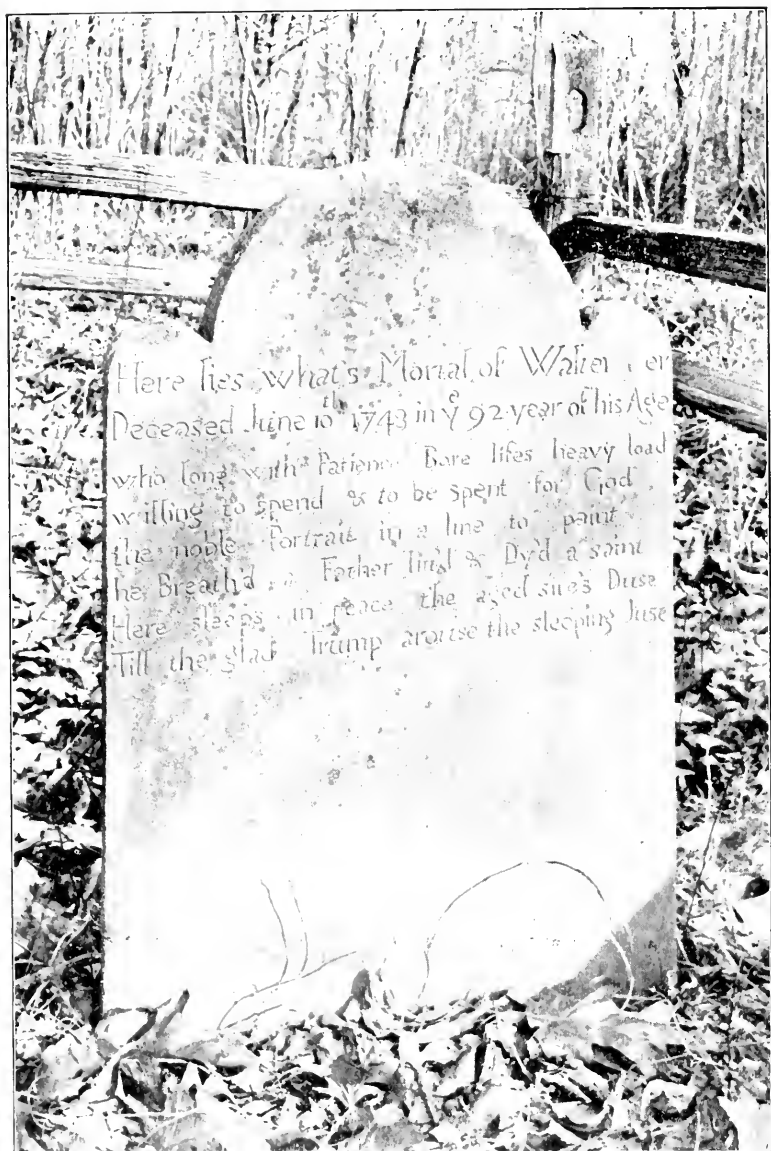 Here lies what's Mortal of Walter
Deceased June 10th 1743 in ye 92 year of his Age
who long with Patience Bore lifes heavy load
willing to spend & to be spent for God
the noble Portrait in a line to paint
he Breath'd a Father liv'd & Dy'd a saint
Here sleeps in peace the aged sire's Dust
Till the glad Trump arouse the sleeping Just